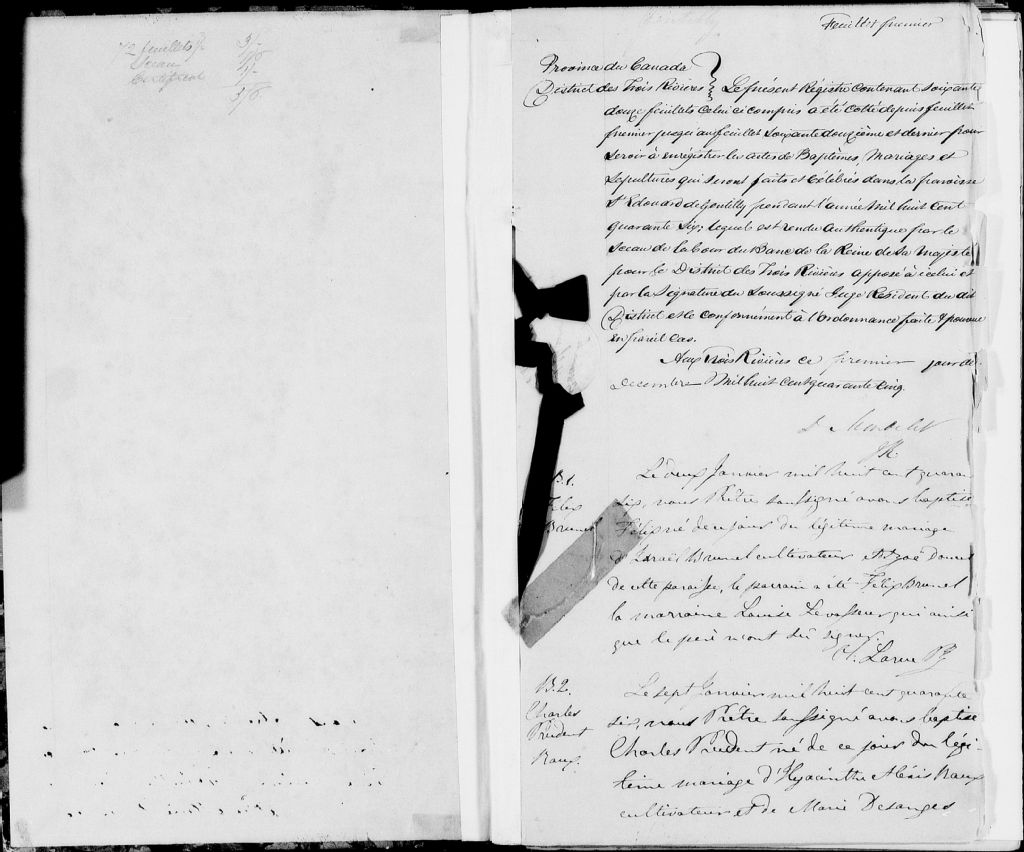 72 feuillets 3/-
Sceau
Certificat
3/6
Feuillet premier
Province du Canada
District des Trois Rivières } Le présent Régistre contenant soixante
douze feuillets celui ci compris a été cotté depuis feuillet
premier jusqu'au feuillet soixante douzième et dernier pour
servir à enrégistrer les actes de Baptêmes, Mariages et
Sépultures qui seront faits et célébrés dans la paroisse
St Edouard de Gentilly pendant l'année Mil huit cent
quarante Six; lequel est rendu authentique par le
Sceau de la Cour du Banc de la Reine de Sa Majesté
pour le District des Trois Rivières apposé à icelui et
par la Signature du Soussigné Juge Résident du dit
District et le conformément à l'ordonnance faite & pourvue
en pareil cas.
Aux Trois Rivières ce premier jour de
Decembre Mil huit cent quarante cinq.
Mondelet
B.1.
Felix
Brunel
Le deux Janvier mil huit cent quaran
six, nous Prêtre soussigné avons baptisé
Félix né de ce jour du légitime mariage
d'Israël Brunel cultivateur et Zoé
de cette paroisse, le parrain a été Félix Brunel
la marraine Louise Levasseur qui ainsi
que le père n'ont su signer.
Laru
B.2.
Charles
Prudent
Raux.
Le sept Janvier mil huit cent quarante
six, nous Prêtre soussigné avons baptisé
Charles Prudent né de ce jour du légi-
time mariage d'Hyacinthe Alexis Raux
cultivateur et de Marie Desanges